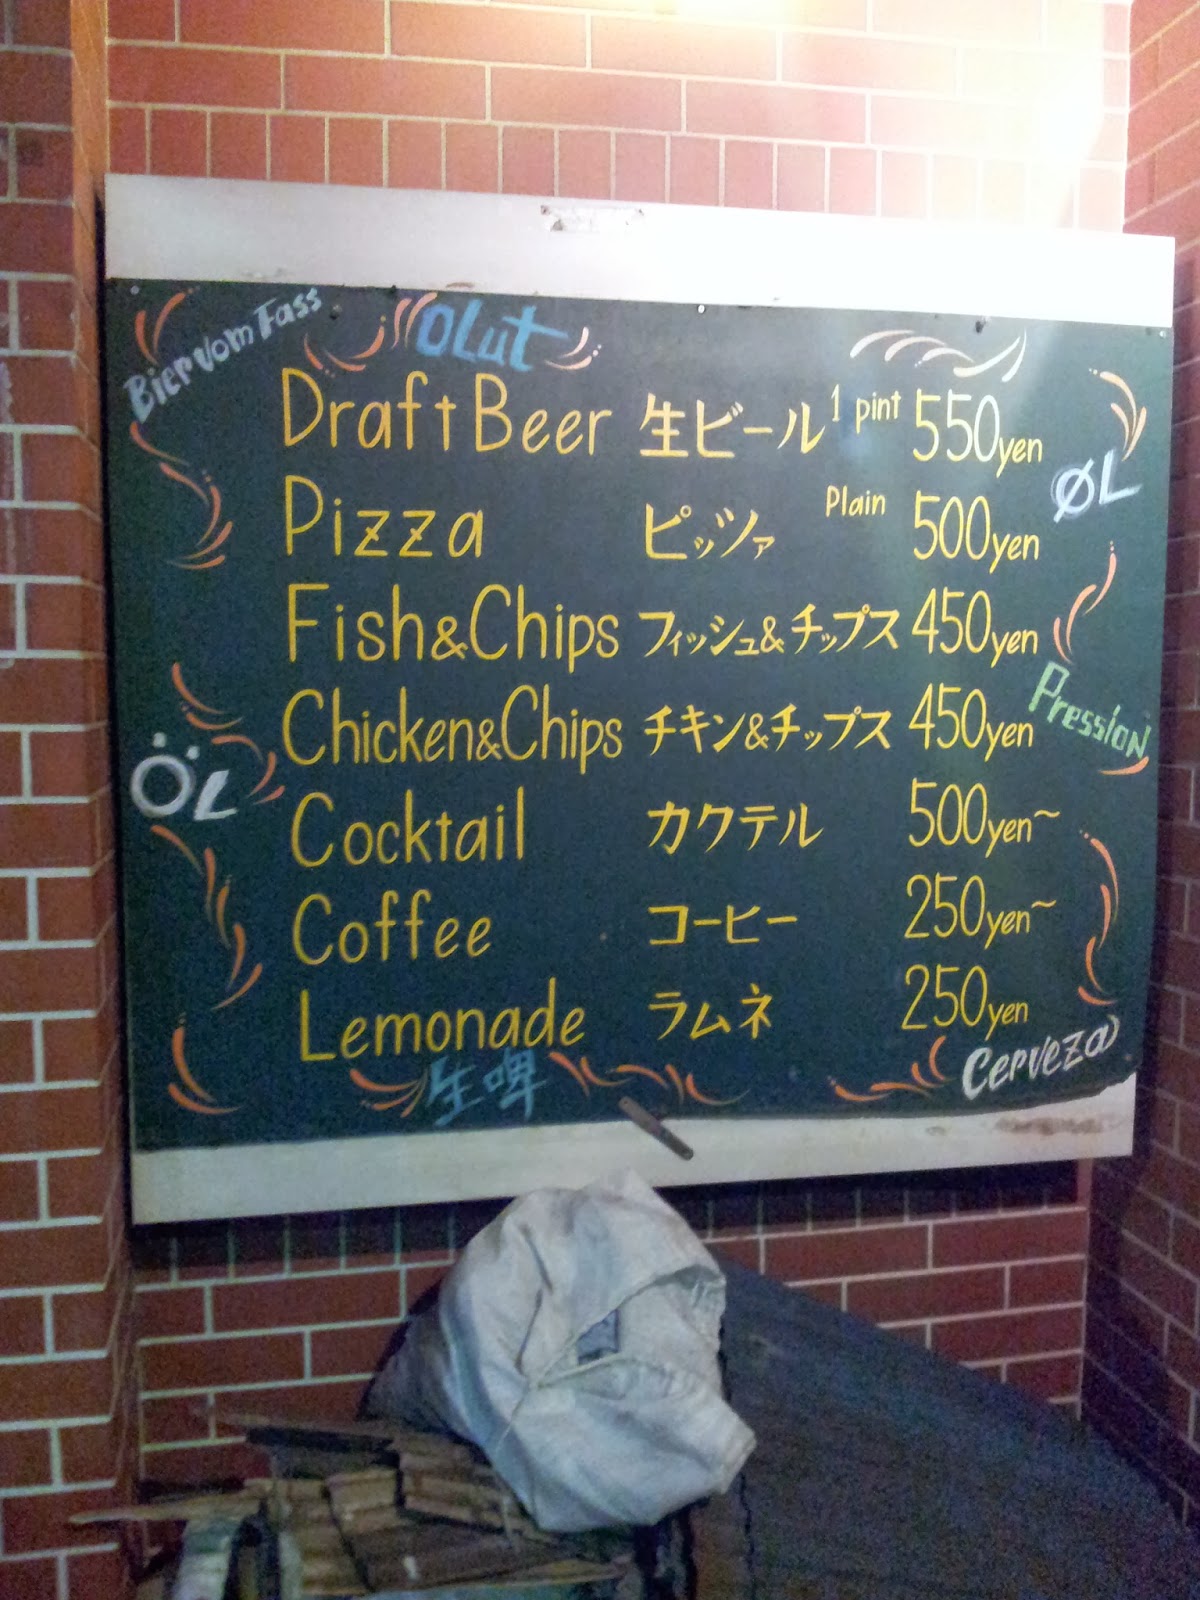 Bier vom Fass
OLut
Draft Beer 生ビール 1 pint 550yen
ØL
Pizza ピッツァ Plain 500yen
Fish&Chips フィッシュ&チップス 450yen
Pression
Chicken&Chips チキン&チップス 450yen
ÖL
Cocktail カクテル 500yen~
Coffee コーヒー 250yen~
Lemonade ラムネ 250yen
生啤
Cerveza